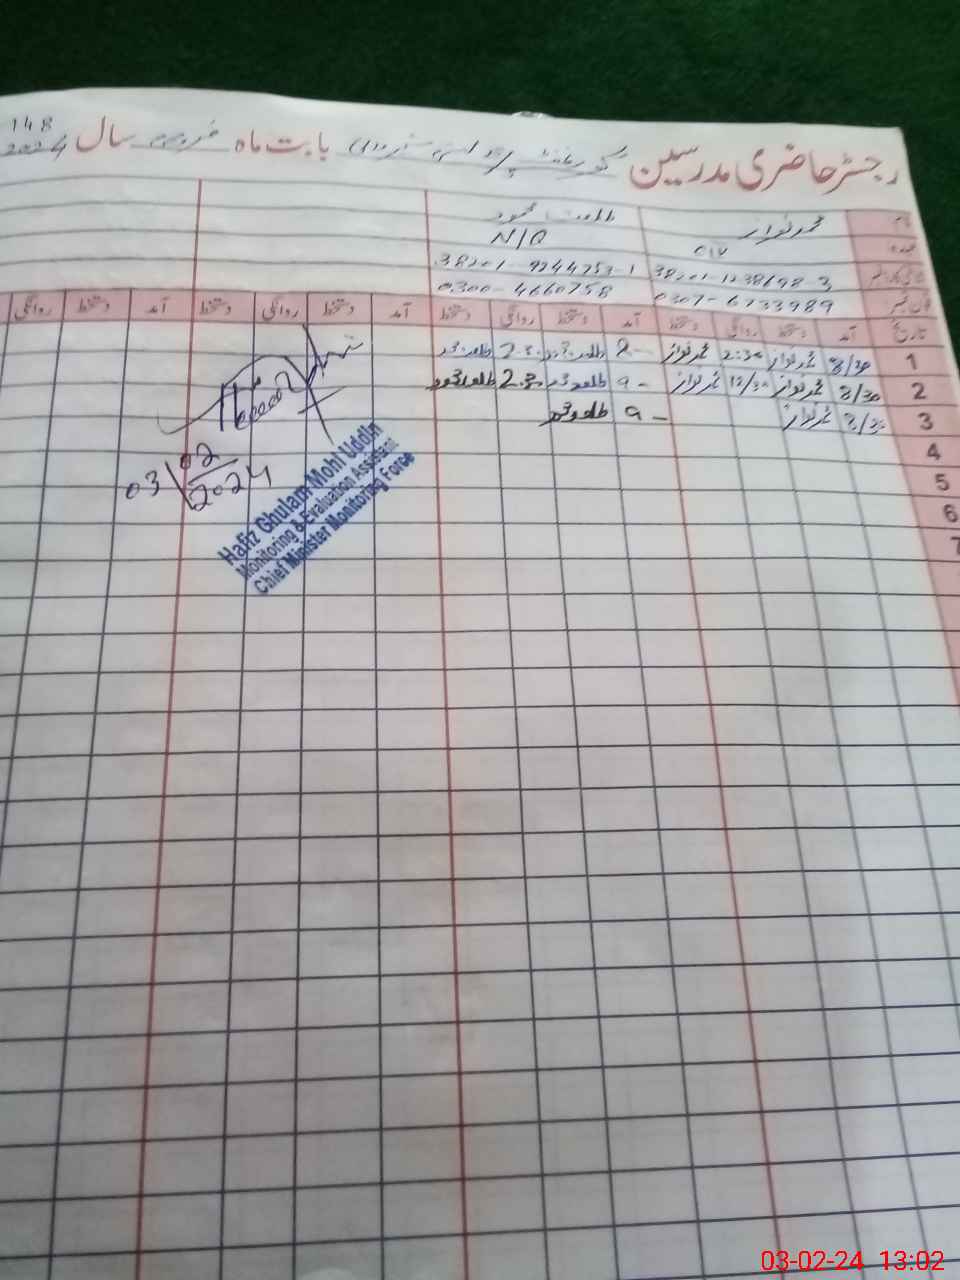 148
رجسٹر حاضری مدرسین گورنمنٹ بابت ماہ فروری سال 2024
نام محمد نواز طلعت محمود
عہدہ N/Q
شناختی کارڈ نمبر 38201-1238698-3 38201-9244753-1
فون نمبر 0307-6733989 0300-4660758
تاریخ آمد دستخط روانگی دستخط آمد دستخط روانگی دستخط آمد دستخط روانگی دستخط آمد دستخط روانگی
1 8/30 محمد نواز 2:30 محمد نواز 8 طلعت محمود 2:30 طلعت محمود
2 8/30 محمد نواز 12/30 محمد نواز 9 طلعت محمود 2:30 طلعت محمود
3 8/30 محمد نواز 9 طلعت محمود
4
5
6
7
03/02/2024
Hafiz Ghulam Mohi Uddin
Monitoring & Evaluation Assistant
Chief Minister Monitoring Force
03-02-24 13:02